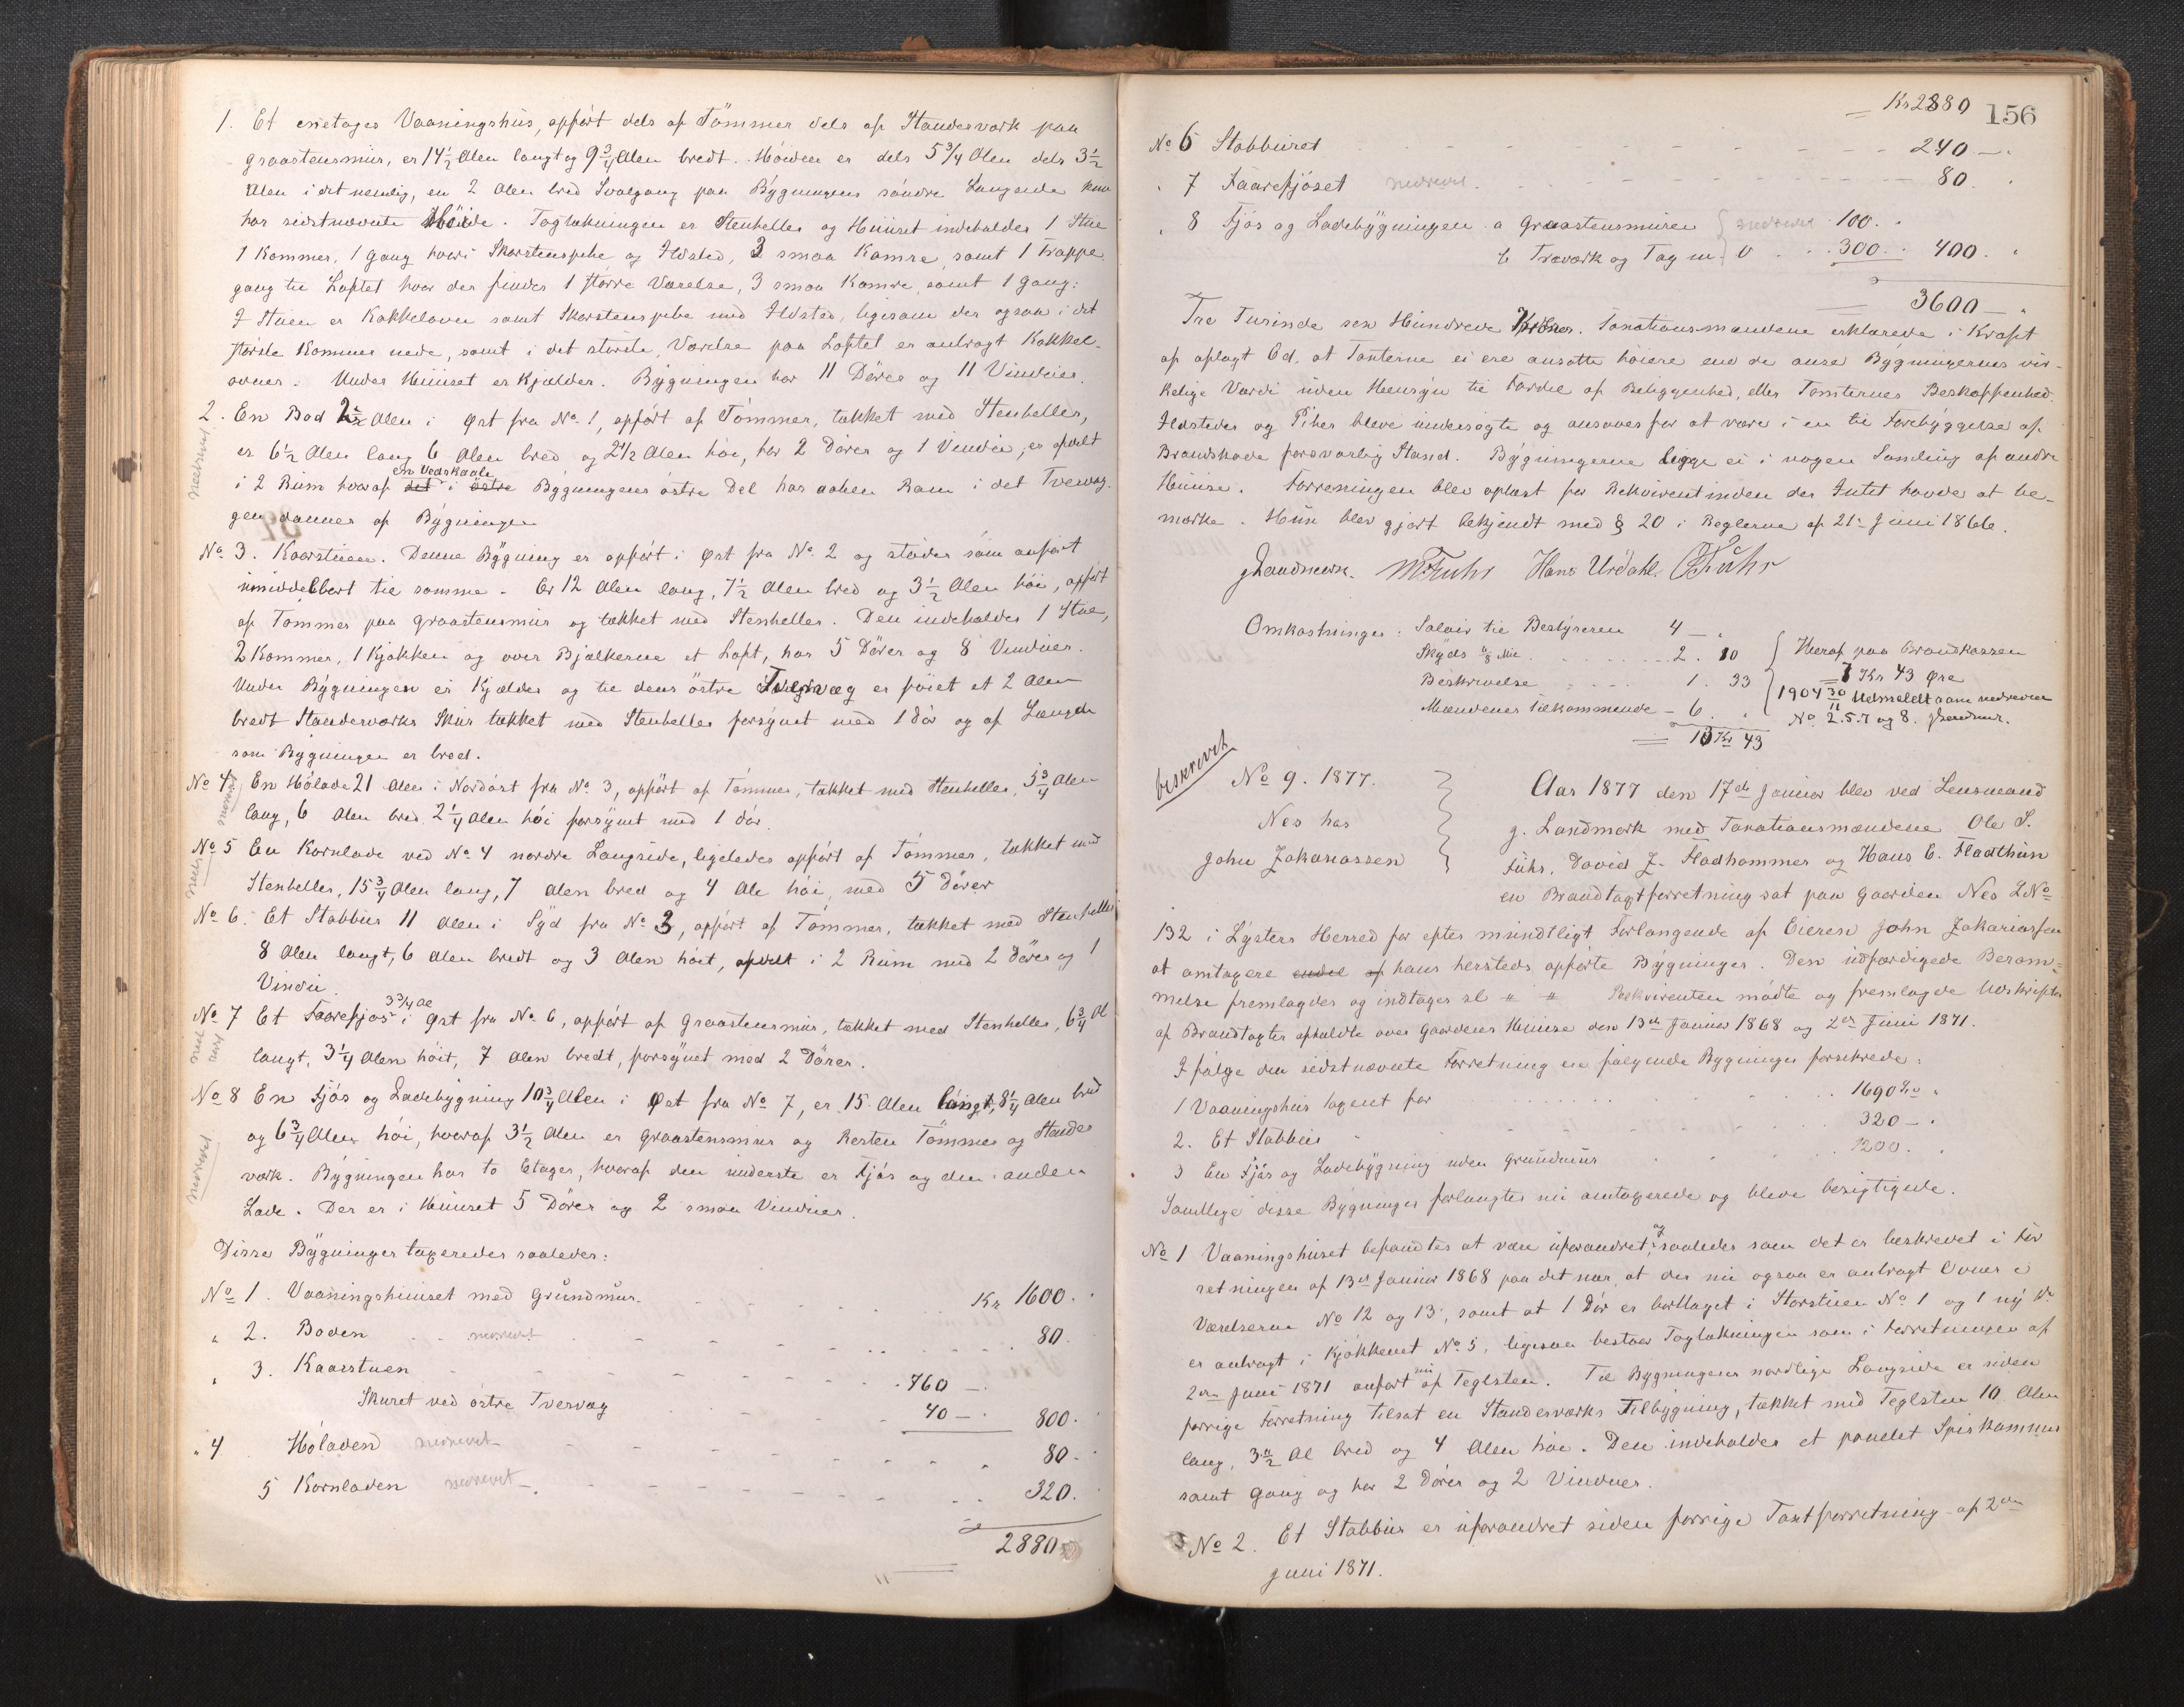 1. Et enetages Vaaningshus, opført dels af Tømmer dels af Standerværk paa
graastensmur, er 14½ Alen langt og 9¾ Alen bredt. Høiden er dels 5¾ Alen dels 3½
Alen i det nemlig, en 2 Alen bred Svalgang paa Bygningens søndre Langside kun
har sidstnævnte Høide. Taglækningen er Stenheller og Huset indeholder 1 Stue
1 Kammer, 1 Gang hvori Skorstenspibe og Ildsted, 3 smaa Kamre, samt 1 Trappe
gang til Loftet hvor der findes 1 større Værelse, 3 smaa Kamre, samt 1 Gang.
I Stuen er Kakkelovn samt Skorstenspibe med Ildsted, ligesom der ogsaa i det
største Kammer nede, samt i det største Værelse paa Loftet er anbragt Kakkel-
ovner. Under Huset er Kjælder. Bygningen har 11 Dører og 11 Vinduer.
2. En Bod 2½ Alen i Øst fra No 1, opført af Tømmer, tækket med Stenheller,
er 6½ Alen lang 6 Alen bred og 2½ Alen høi, har 2 Dører og 1 Vindue, er afdelt
en Vedskaale
i 2 Rum hvoraf det i østre Bygningens østre Del har aaben Ram i det Tvervæg-
gen dannes af Bygningen
nedrevet
No 3. Kaarstuen. Denne Bygning er opført i Øst fra No 2 og støder som anført
umiddelbart til samme. Er 12 Alen lang, 7½ Alen bred og 3½ Alen høi, opført
af Tømmer paa graastensmur og tækket med Stenheller. Den indeholder 1 Stue,
2 Kammer, 1 Kjøkken og over Bjælkerne et Loft, har 5 Dører og 8 Vinduer.
Under Bygningen er Kjælder og til dens østre Tvervæg er føiet et 2 Alen
bredt Standerværks Skur tækket med Stenheller forsynet med 1 Dør og af Længde
som Bygningen er bred.
No 4 En Hølade 21 Alen i Nordøst fra No 3, opført af Tømmer, tækket med Stenheller, 5¾ Alen
lang, 6 Alen bred 2¼ Alen høi forsynet med 1 Dør.
No 5 En Kornlade ved No 4 nordre Langside, ligeledes opført af Tømmer, tækket med
Stenheller, 15¾ Alen lang, 7 Alen bred og 4 Ale høi, med 5 Dører
No 6. Et Stabbur 11 Alen i Syd fra No 3, opført af Tømmer, tækket med Stenheller
8 Alen langt, 6 Alen bredt og 3 Alen høit, afdelt i 2 Rum med 2 Dører og 1
Vindue.
3¾ Al
No 7 Et Faarefjøs i Øst fra No 6, opført af Graastensmur, tækket med Stenheller, 6¾ Al
langt, 3¼ Alen høit, 7 Alen bredt, forsynet med 2 Dører.
No 8 En Fjøs og Ladebygning 10¾ Alen i Øst fra No 7, er 15 Alen langt, 8¼ Alen bred
og 6¾ Alen høi, hvoraf 3½ Alen er Graastensmur og Resten Tømmer og Stander
værk. Bygningen har to Etager, hvoraf den underste er Fjøs og den anden
Lade. Der er i Huset 5 Dører og 2 smaa Vinduer.
nedrevet
Disse Bygninger taxeredes saaledes:
No 1. Vaaningshuset med Grundmur Kr 1600.
" 2. Boden nedrevet 80.
" 3. Kaarstuen 760 —
Skuret ved østre Tvervæg 40 — 800.
" 4 Høladen nedrevet 80.
5 Kornladen nedrevet 320.
2880
Kr 2880 156
No 6 Stabburet 240 —
" 7 Faarefjøset nedrevet 80.
" 8 Fjøs og Ladebygningen a Graastensmuren nedrevet 100.
b Træværk og Tag m. v 300. 400.
3600 —
Tre Tusinde sex Hundrede Kroner. Taxationsmændene erklærede i Kraft
af aflagt Ed, at Taxterne ei ere ansatte høiere end de anse Bygningernes vir-
kelige Værdi uden Hensyn til Fordel af Beliggenhed, eller Tomternes Beskaffenhed.
Ildsteder og Piber bleve undersøgte og ansaaes for at være i en til Forebyggelse af
Brandskade forsvarlig Stand. Bygningerne ligge ei i nogen Samling af andre
Huse. Forretningen blev oplæst for Rekvirentinden der Intet havde at be-
mærke. Hun blev gjort bekjendt med § 20 i Reglerne af 21 Juni 1866.
GLandmerk. MFuhr Hans Urdahl. OFuhr
Omkostninger: Salair til Bestyreren 4 —
Skyds 2. 10
Beskrivelse 1. 33
Mændenes tilkommende — 6.
13 Kr 43
Heraf paa Brandkassen
7 Kr 43 Øre
1904 30/11 Udmeldt som nedrevne
No 2.5.7 og 8.
beskrevet
No 9. 1877.
Nes hos
John Zakariassen
Aar 1877 den 17de Januar blev ved Lensmand
G. Landmark med Taxationsmændene Ole S.
Fuhr, David J. Fladhammer og Hans E. Fladhun
en Brandtaxtforretning sat paa Gaarden Nes LNo
132 i Lysters Herred for efter mundtligt Forlangende af Eieren John Zakariassen
at omtaxere endel af hans hersteds opførte Bygninger. Den udfærdigede Beram-
melse fremlagdes og indtages sl " " Rekvirenten mødte og fremlagde Udskrifter
af Brandtaxter afholdte over Gaardens Huse den 13de Januar 1868 og 2den Juni 1871.
I følge den sidstnævnte Forretning ere følgende Bygninger forsikrede:
1 Vaaningshus taxeret for 1690 Kr
2. Et Stabbur 320 —
3 En Fjøs og Ladebygning uden Grundmur 1200.
Samtlige disse Bygninger forlangtes nu omtaxerede og bleve besigtigede.
No 1 Vaaningshuset befandtes at være uforandret, og saaledes som det er beskrevet i For
retningen af 13de Januar 1868 paa det nær, at der nu ogsaa er anbragt Ovner i
Værelserne No 12 og 13, samt at 1 Dør er borttaget i Storstuen No 1 og 1 ny do
er anbragt i Kjøkkenet No 5, ligesaa bestaar Taglækningen som i Forretningen af
2den Juni 1871 anført nu af Teglsten. Til Bygningens nordlige Langside er siden
forrige Forretning tilsat en Standerværks Tilbygning, tækket med Teglsten 10 Alen
lang, 3½ Al bred og 4 Alen høi. Den indeholder et panelet Spiskammer
samt Gang og har 2 Dører og 2 Vinduer.
No 2. Et Stabbur er uforandret siden forrige Taxtforretning af 2den
Juni 1871.